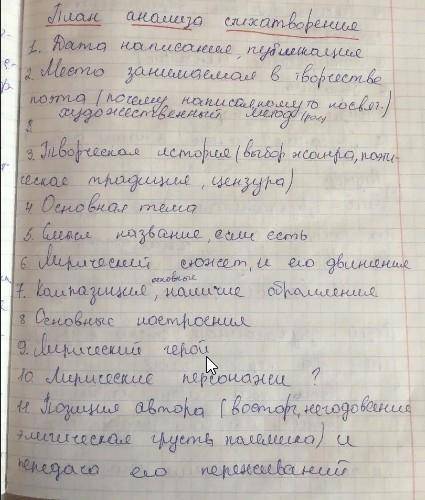 План анализа стихатворения
1. Дата написание, публикация
2. Место занимаемая в творчестве
поэта (почему написал, кому то посвят.)
художественный метод
3. Творческая история (выбор жанра, поэти-
ческае традиция, цензура)
4 Основная тема
5. Смысл название, если есть
6. Лирический сюжет, и его движения
основные
7. Кампазиция, наличие обрамления
8 Основные настроения
9. Лирический герой
10. Лирические персонажи ?
11 Позиция автора (восторг, негодование
элигическая грусть, полемика) и
передача его переживаний